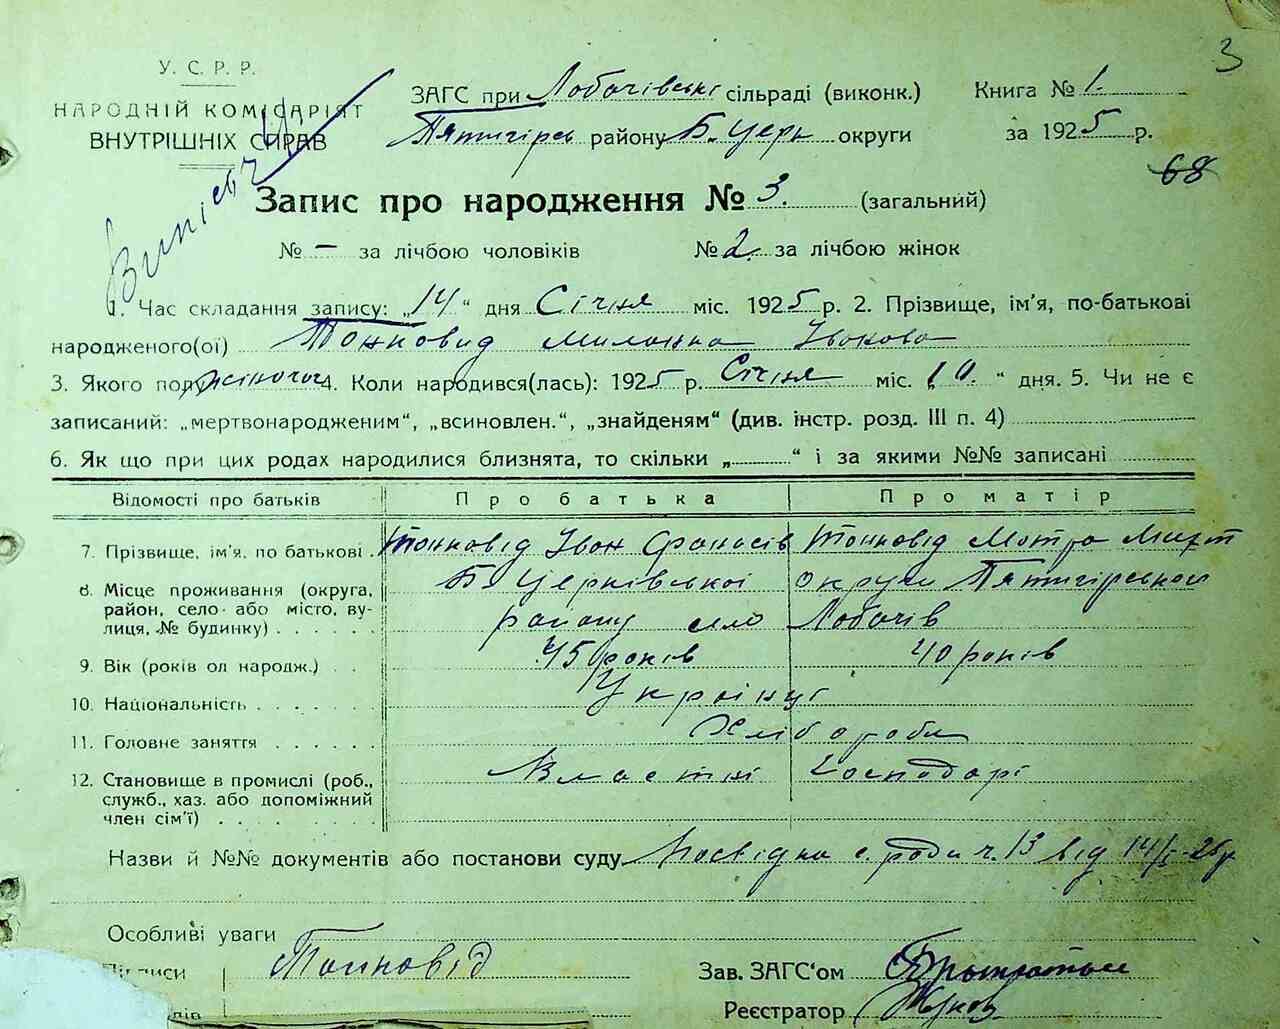 3
У. С. Р. Р.
НАРОДНІЙ КОМІСАРІЯТ
ВНУТРІШНІХ СПРАВ
ЗАГС при Лобачівські сільраді (виконк.)
Книга № 1.
Пятигірсь району Б. Церк округи
за 1925 р.
68
Запис про народження № 3. (загальний)
№ – за лічбою чоловіків № 2. за лічбою жінок
1. Час складання запису: „14“ дня Січня міс. 1925 р. 2. Прізвище, ім'я, по-батькові
народженого(ої) Іванова
3. Якого полу жіночог 4. Коли народився(лась): 1925 р. Січня міс. „10.“ дня. 5. Чи не є
записаний: „мертвонародженим“, „всиновлен.“, „знайденям“ (див. інстр. розд. III п. 4)
6. Як що при цих родах народилися близнята, то скільки „ “ і за якими №№ записані
Відомості про батьків Про батька Про матір
7. Прізвище, ім'я, по батькові . Іван Фанасів Мотра
8. Місце проживання (округа, Б. Церківської округи Пятигірського
район, село або місто, ву- району село Лобачів
лиця, № будинку) . . . . . .
9. Вік (років од народж.) . . 45 років 40 років
10. Національність . . . . . . . Українці
11. Головне заняття . . . . . . Хлібороби
12. Становище в промислі (роб., Властні господарі
служб., хаз. або допоміжний
член сім'ї) . . . . . . . .
Назви й №№ документів або постанови суду Посвідка с. ради ч. 13 від 14/I-25 р
Особливі уваги
Зав. ЗАГС'ом
Реєстратор